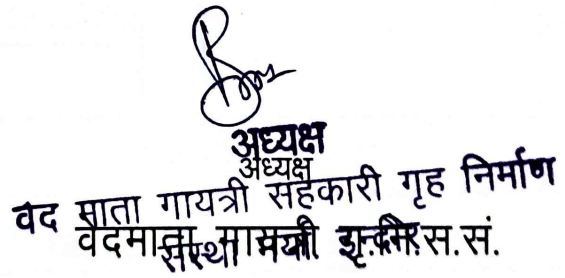 अध्यक्ष
अध्यक्ष
वद माता गायत्री सहकारी गृह निर्माण
वेदमाता गायत्री गृ.नि.स.सं.
संस्था